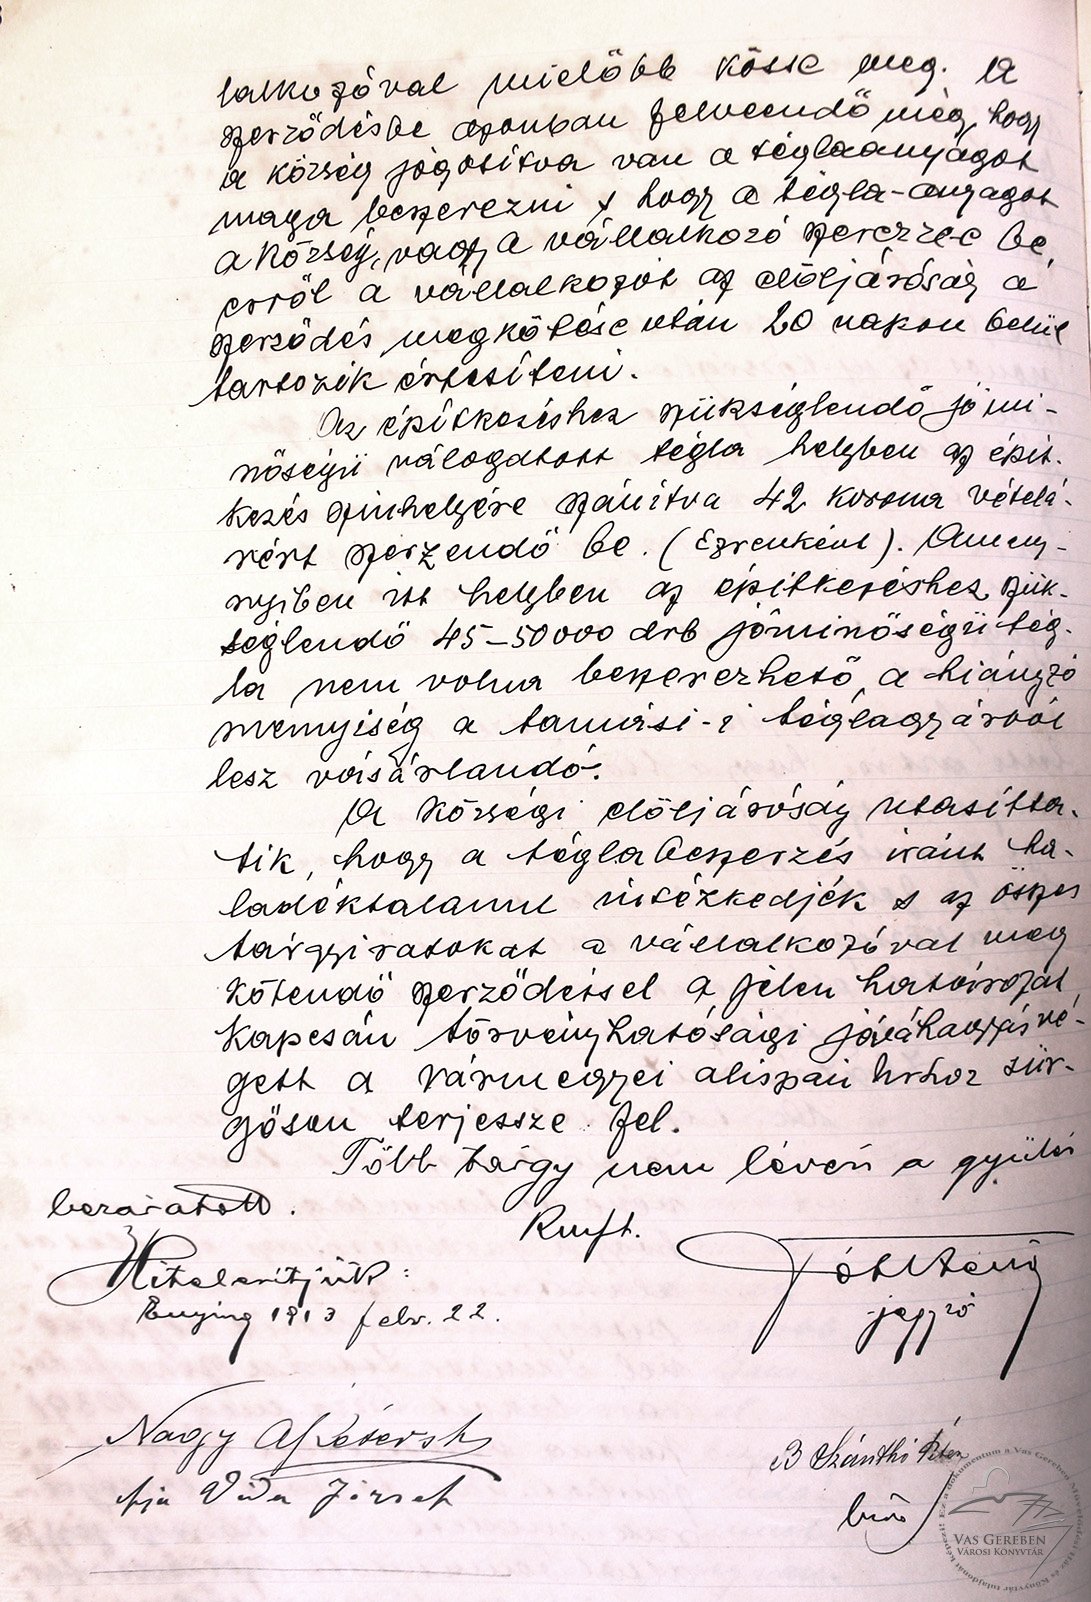 lalkozóval mielőbb kösse meg. A
szerződésbe azonban felveendő még, hogy
a község jogosítva van a téglaanyagot
maga beszerezni s hogy a tégla-anyagot
a község, vagy a vállalkozó szerezze be,
erről a vállalkozót az elöljáróság a
szerződés megkötése után 20 napon belül
tartozik értesíteni.
Az építkezéshez szükséglendő jó mi-
nőségű válogatott tégla helyben az épít-
kezés színhelyére szánítva 42 korona vételá-
rért szerzendő be. (Ezrenként). Ameny-
nyiben itt helyben az építkezéshez szük-
séglendő 45-50000 drb jóminőségű tég-
la nem volna beszerezhető, a hiányzó
menyiség a tamási-i téglagyárból
lesz vásárlandó.
A községi elöljáróság utasítta-
tik, hogy a tégla beszerzés iránt ha-
ladéktalanul intézkedjék s az összes
tárgyiratokat a vállalkozóval meg
kötendő szerződéssel a jelen határozat
kapcsán törvényhatósági jóváhagyás vé-
gett a vármegyei alispán úrhoz sür-
gősen terjessze fel.
Több tárgy nem lévén a gyűlés
bezáratott.
Kmft.
Hitelesítjük:
Enying 1913 febr. 22.
jegyző
Nagy A Péter sk
ifja Vida József
B Szánthó Péter
biró
Ez a dokumentum a Vas Gereben Művelődési Ház és Könyvtár tulajdonát képezi!
VAS GEREBEN
VÁROSI KÖNYVTÁR